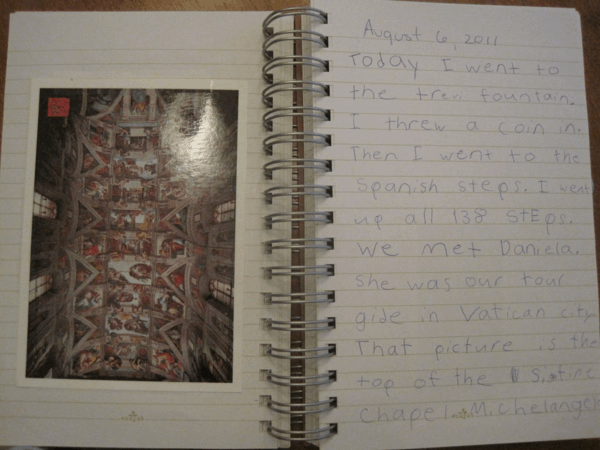 August 6, 2011
Today I went to
the trevi fountain.
I threw a coin in.
Then I went to the
Spanish steps. I went
up all 138 StEps.
We met Daniela.
she was our tour
gide in Vatican city.
That picture is the
top of the Sistine
Chapel. Michelangelo